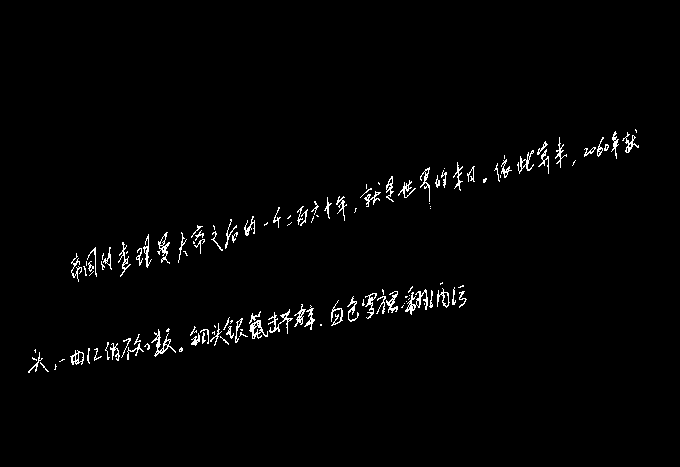 帝国的查理曼大帝之后的一千二百六十年,就是世界的末日。依此算来,2060年就
头,一曲红绡不知数。钿头银篦击节碎,血色罗裙翻酒污